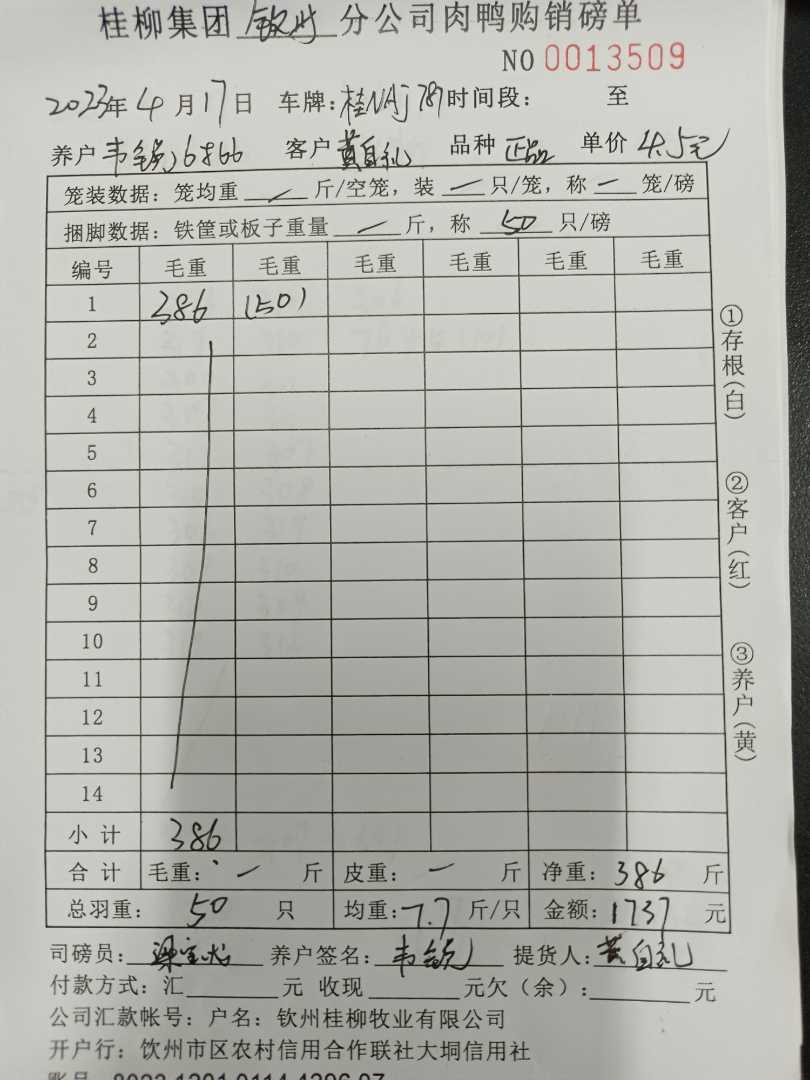 桂柳集团 钦州 分公司肉鸭购销磅单
NO 0013509
2023年 4 月 17 日 车牌：桂NAJ787 时间段： 至
养户 韦 6866 客户 黄自礼 品种 正品 单价 4.5元
笼装数据：笼均重 — 斤/空笼，装 — 只/笼，称 — 笼/磅
捆脚数据：铁筐或板子重量 — 斤，称 50 只/磅
编号 毛重 毛重 毛重 毛重 毛重 毛重
1 386 (50)
2
3
4
5
6
7
8
9
10
11
12
13
14
小 计 386
合 计 毛重：— 斤 皮重：— 斤 净重：386 斤
总羽重： 50 只 均重：7.7 斤/只 金额：1737 元
司磅员：梁 养户签名：韦 提货人：黄自礼
付款方式：汇 元 收现 元欠（余）： 元
公司汇款帐号：户名：钦州桂柳牧业有限公司
开户行：饮州市区农村信用合作联社大垌信用社
账号 8023 1201 0114 4396 07
①存根（白）
②客户（红）
③养户（黄）